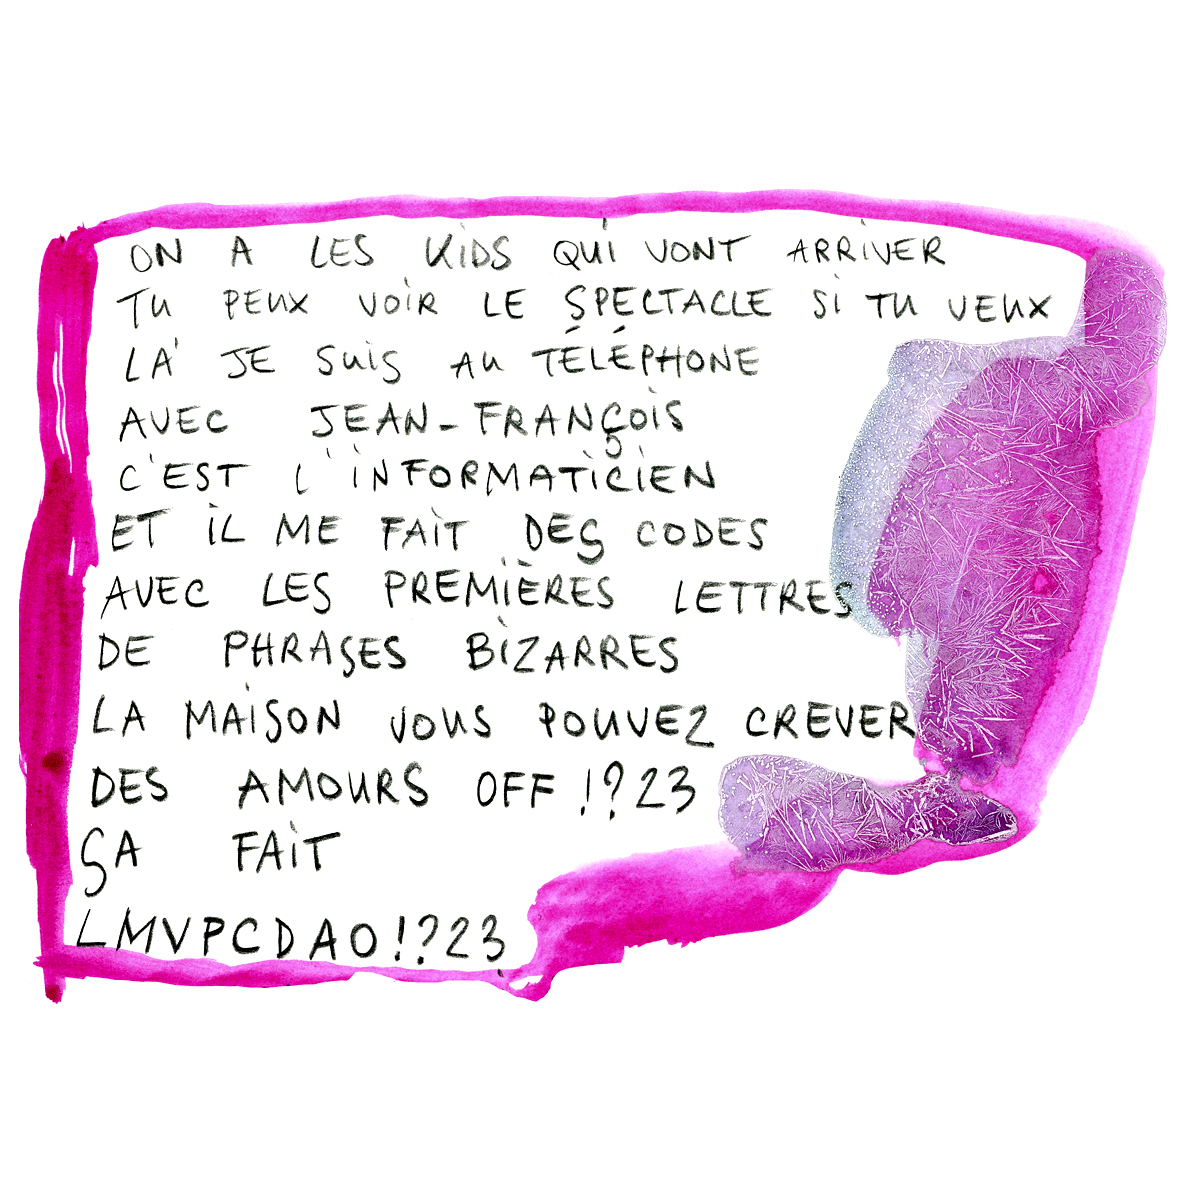 ON A LES KIDS QUI VONT ARRIVER
TU PEUX VOIR LE SPECTACLE SI TU VEUX
LÀ JE SUIS AU TÉLÉPHONE
AVEC JEAN-FRANÇOIS
C'EST L'INFORMATICIEN
ET IL ME FAIT DES CODES
AVEC LES PREMIÈRES LETTRES
DE PHRASES BIZARRES
LA MAISON VOUS POUVEZ CREVER
DES AMOURS OFF !?23
ÇA FAIT
LMVPCDAO!?23